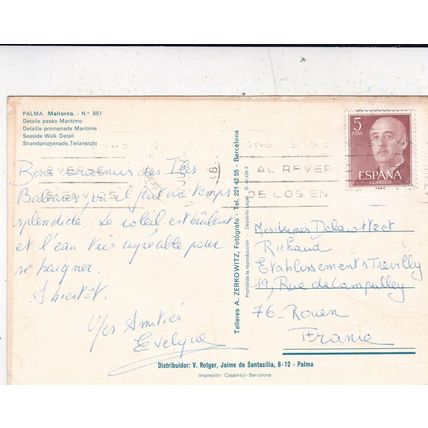 PALMA. Mallorca. - N.º 851
Detalle paseo Marítimo
Détaille promenade Maritime
Seaside Walk Detail
Strandpromenade, Teilansicht
Bons souvenirs des Iles
Baléares où il fait un temps
splendide. Le soleil est brûlant
et l'eau très agréable pour
se baigner.
A bientôt.
Mes Amitiés
Evelyne
Talleres A. ZERKOWITZ, Fotógrafo - Tel. 221 42 55 - Barcelona
Prohibida la reproducción
Depósito legal B.
5
PTAS
ESPAÑA
CORREOS
AL REVER
DE LOS EN
Mesdames
Richard
Etablissements
19, Rue de Campulley
76. Rouen
France
Distribuidor: V. Rotger, Jaime de Santacilia, 8-12 - Palma
Impresión: Casamajó-Barcelona